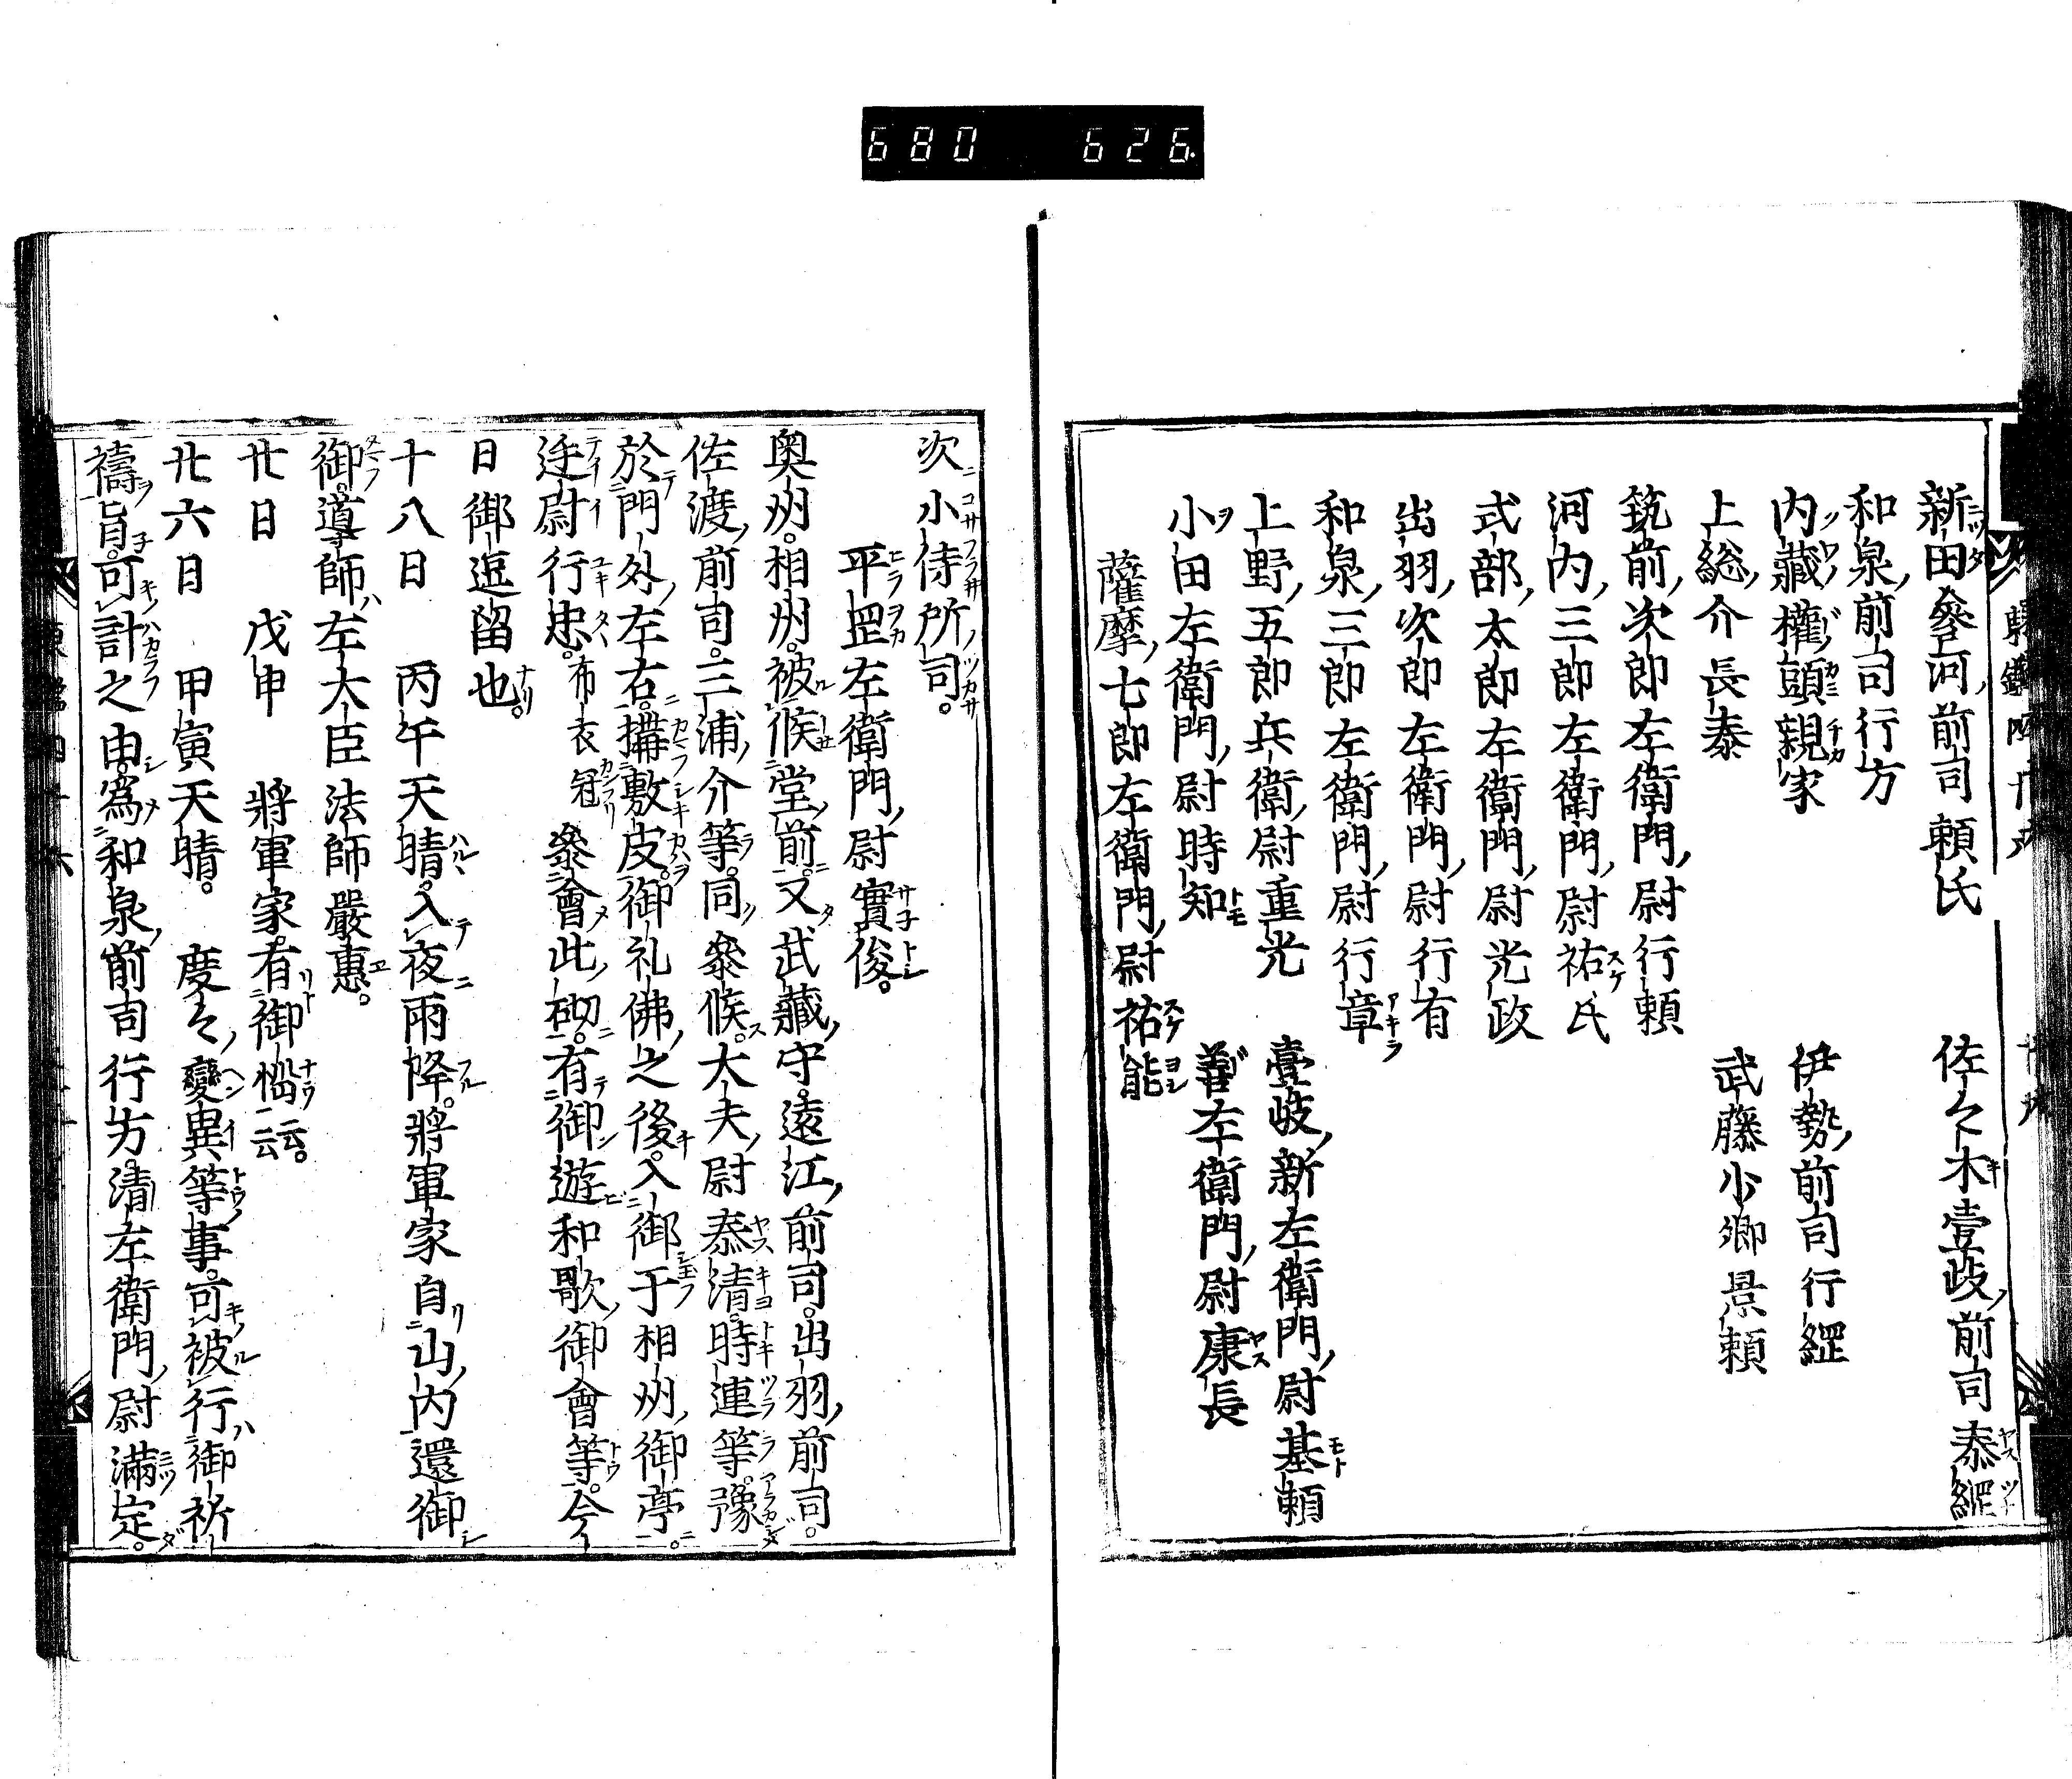 680 626
新田參河前司頼氏 佐々木壹岐前司泰經
和泉前司行方
内藏權頭親家 伊勢前司行經
上総介長泰 武藤少卿景頼
筑前次郎左衛門尉行頼
河内三郎左衛門尉祐氏
式部太郎左衛門尉光政
出羽次郎左衛門尉行有
和泉三郎左衛門尉行章
上野五郎兵衛尉重光 壹岐新左衛門尉基頼
小田左衛門尉時知 善左衛門尉康長
薩摩七郎左衛門尉祐能
次小侍所司。
平罡左衛門尉實俊。
奥州。相州。被候堂前。又武藏守。遠江前司。出羽前司。
佐渡前司。三浦介等。同參候。大夫尉泰清。時連等。豫
於門外左右。搆敷皮。御礼佛之後。入御于相州御亭。
廷尉行忠。布衣冠 參會此砌。有御遊和歌御會等。今
日御逗留也。
十八日 丙午天晴。入夜雨降。將軍家自山内還御
御。導師左大臣法師嚴惠。
廿日 戊申 將軍家。有御惱云云。
廿六日 甲寅天晴。 度々變異等事。可被行御祈
禱旨。可計之由。爲和泉前司行方。清左衛門尉滿定。